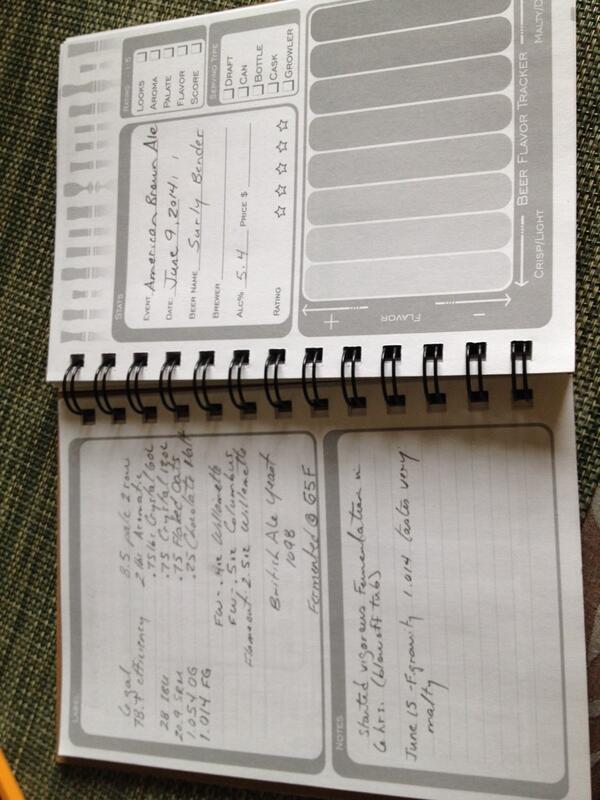 LABEL
6 gal
78.7 efficiency
28 IBU
20.9 SRM
1.054 OG
1.014 FG
8.5 pale 2 row
2 lbs Aromatic
.75 lbs Crystal 60L
.75 Crystal 120L
.75 Flaked Oats
.25 Chocolate Malt
FW - .4 oz Willamette
FW - .5 oz Columbus
Flameout - 2.5 oz Willamette
British Ale Yeast
1098
Fermented @ 65F
NOTES
Started vigorous fermentation in
6 hrs. (blow off tab)
June 15 - F gravity 1.014 tastes very
malty
STATS
EVENT American Brown Ale
DATE: June 9, 2014
BEER NAME Surly Bender
BREWER
ALC% 5.4 PRICE $
RATING
RATING 1-5
LOOKS
AROMA
PALATE
FLAVOR
SCORE
SERVING TYPE
DRAFT
CAN
BOTTLE
CASK
GROWLER
+ FLAVOR -
CRISP/LIGHT BEER FLAVOR TRACKER MALTY/D